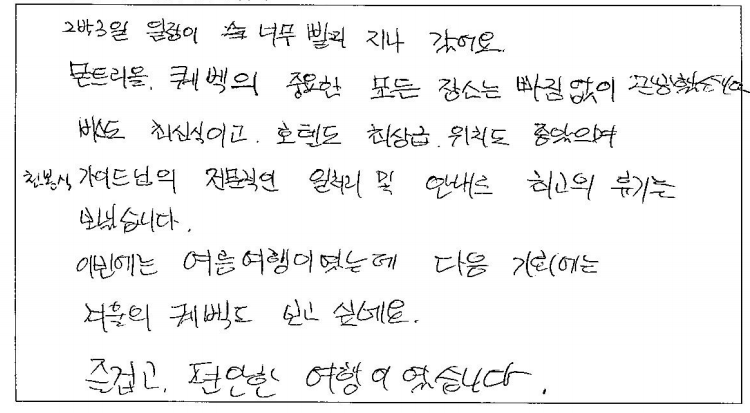 2박3일 일정이 너무 빨리 지나 갔어요.
몬트리올, 퀘벡의 중요한 모든 장소는 빠짐없이
버스도 최신식이고, 호텔도 최상급, 위치도 좋았으며
천봉식 가이드님의 전문적인 일처리 및 안내로 최고의 휴가를
보냈습니다.
이번에는 여름여행이였는데 다음 기회에는
겨울의 퀘벡도 보고 싶네요.
즐겁고, 편안한 여행이였습니다.